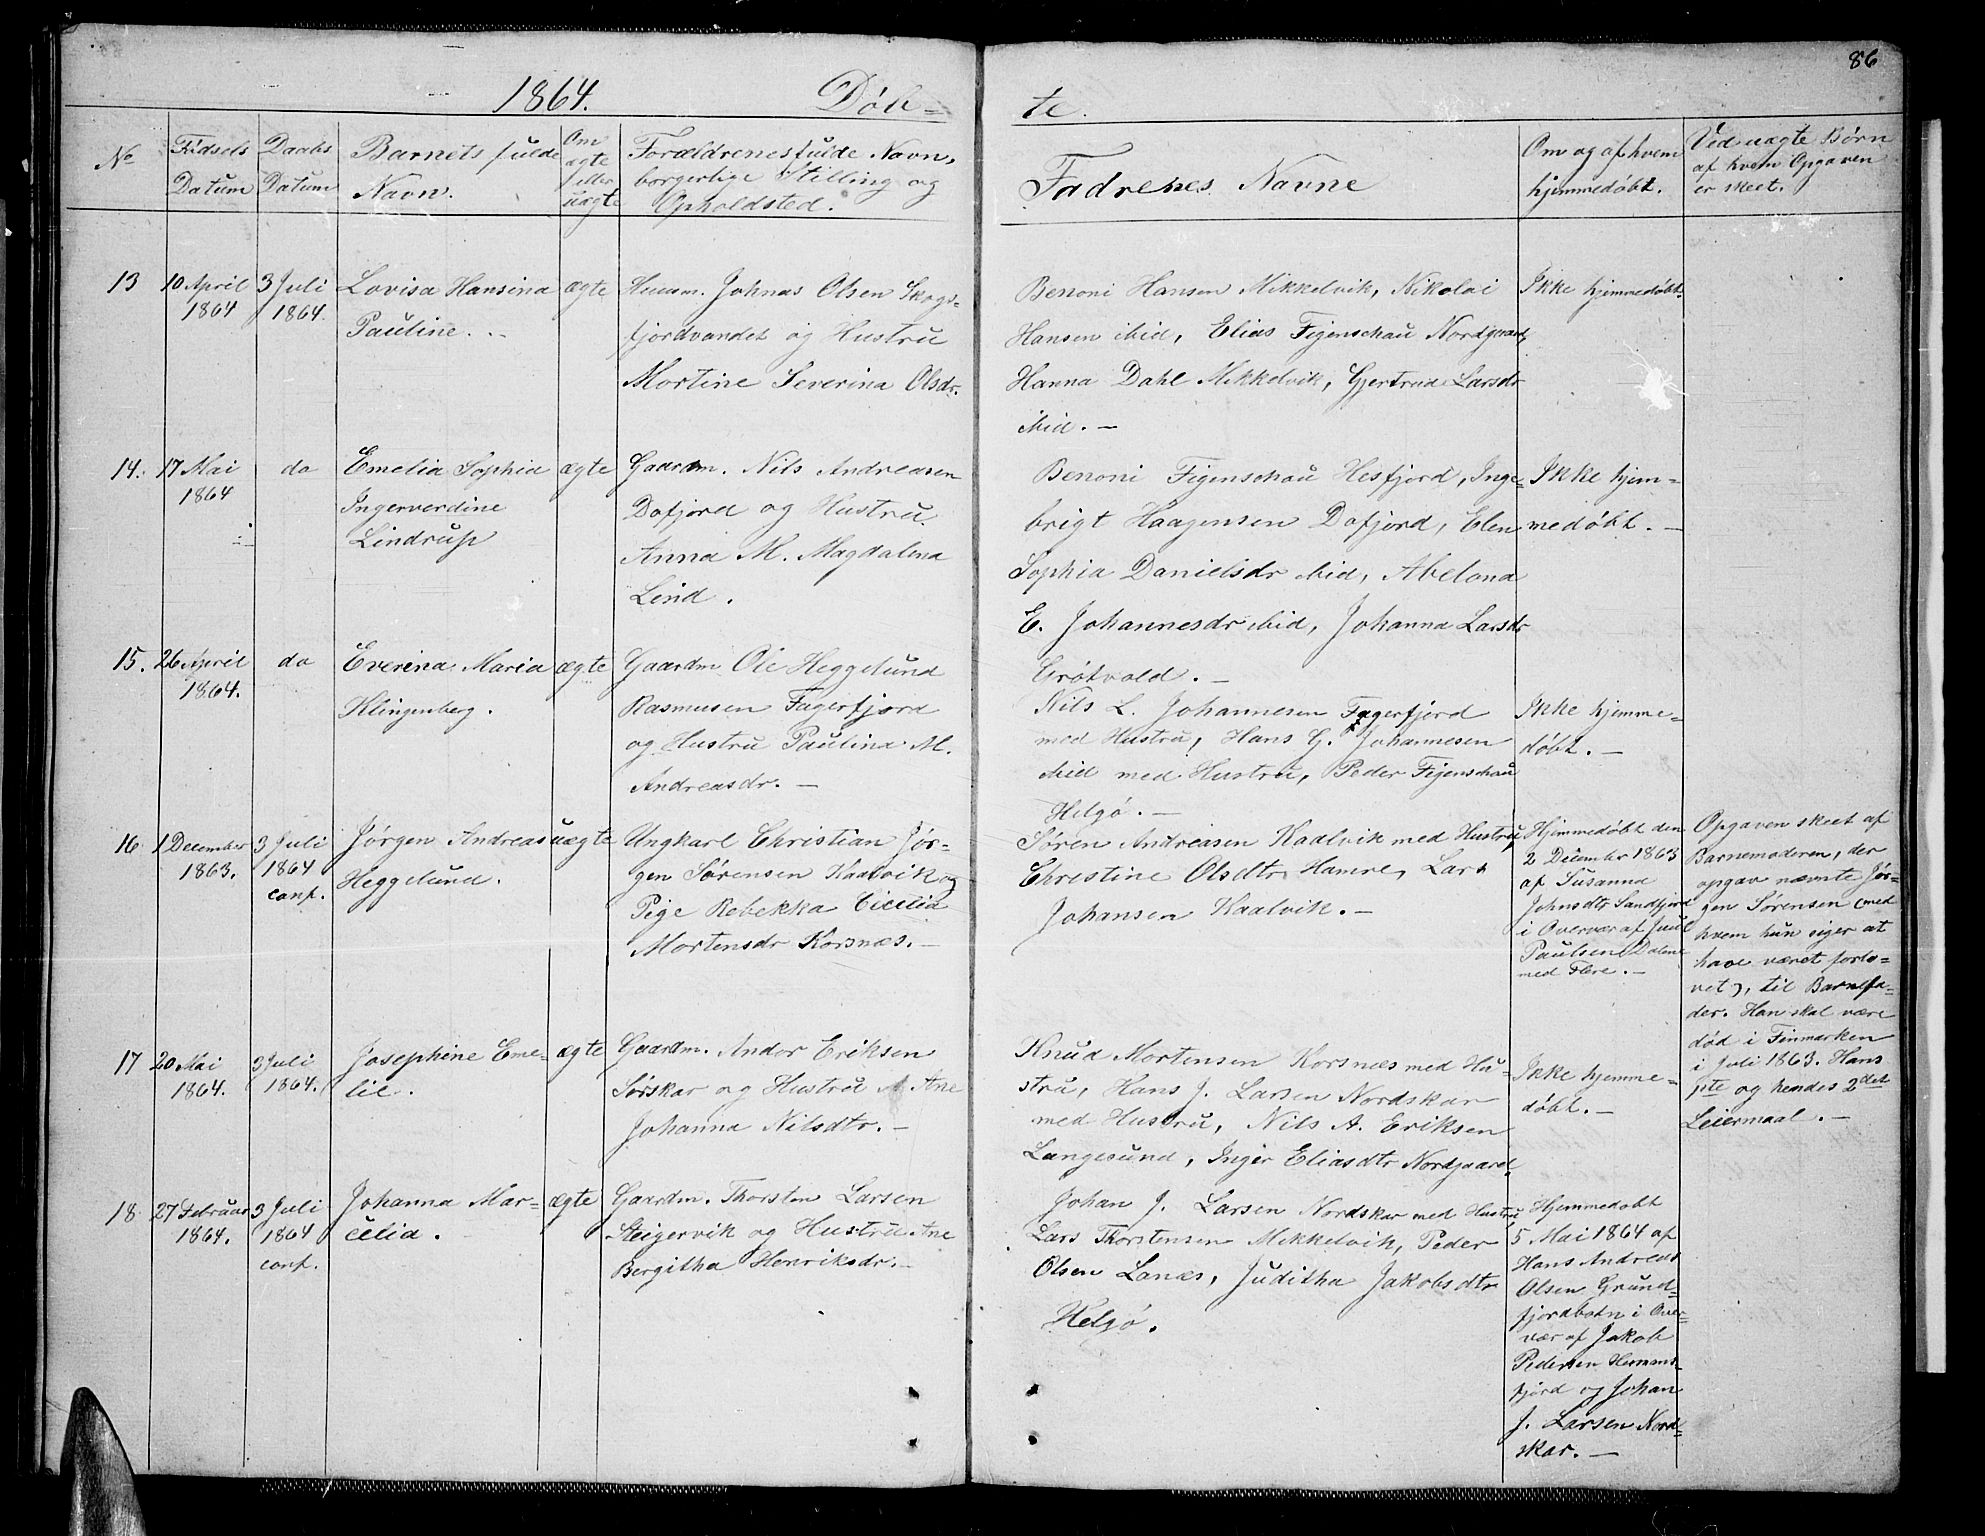 86
1864. Døb=
te.
No
Fødsels Datum
Daabs Datum
Barnets fulde Navn.
Om ægte eller uægte
Forældrenes fulde Navn, borgerlige Stilling og Opholdsted.
Faddrenes Navne
Om og af hvem hjemmedøbt.
Ved uægte Børn af hvem Opgaven er skeet.
13
10 April
1864
3 Juli
1864.
Lovisa Hansina
Pauline.
ægte
Huusm. Johnas Olsen Skogs-
fjordvandet og Hustru
Mortine Severina Olsdr.
Benoni Hansen Mikkelvik, Nikolai
Hansen ibid, Elias Figenschau Nordgaard,
Hanna Dahl Mikkelvik, Gjertrud Larsdr
ibid. —
Ikke hjemmedøbt.
14.
17 Mai
1864
do
Emelia Sophia
Ingerverdine
Lindrup
ægte
Gaardm. Nils Andreasen
Dafjord og Hustru
Anna M. Magdalena
Lind.
Benoni Figenschau Hesfjord, Inge-
brigt Haagensen Dafjord, Elen
Sophia Danielsdr ibid, Abelona
E. Johannesdr ibid, Johanna Larsdr
Grøtvold. —
Ikke hjem=
medøbt. —
15.
26 April
1864.
do
Everina Maria
Klingenberg.
ægte
Gaardm Ole Heggelund
Rasmusen Fagerfjord
og Hustru Paulina M.
Andreasdr. —
Nils L. Johannesen Fagerfjord
med Hustru, Hans G. Johannesen
ibid med Hustru, Peder Figenschau
Helgø. —
Ikke hjemme=
døbt. —
16
1 December
1863.
3 Juli
1864
conf.
Jørgen Andreas
Heggelund.
uægte
Ungkarl Christian Jør-
gen Sørensen Kaalvik og
Pige Rebekka Cicelia
Mortensdr Korsnæs. —
Søren Andreasen Kaalvik med Hustru,
Christine Olsdtr Hamre, Lars
Johansen Kaalvik. —
Hjemmedøbt den
2 December 1863
af Susanna
Johnsdtr Sandfjord
i Overvær af Juul
Paulsen Dalene
med Flere. —
Opgaven skeet af
Barnemoderen, der
opgav nævnte Jør-
gen Sørensen (med
hvem hun siger at
have været forlo-
vet), til Barnefa-
der. Han skal være
død i Finmarken
i Juli 1863. Hans
1ste og hendes 2det
Leiermaal. —
17
20 Mai
1864.
3 Juli
1864.
Josephine Eme-
lie.
ægte
Gaardm. Andor Eriksen
Sørskar og Hustru Ane
Johanna Nilsdtr. —
Knud Mortensen Korsnæs med Hu-
stru, Hans J. Larsen Nordskar
med Hustru, Nils A. Eriksen
Langesund, Inger Eliasdtr Nordgaard.
Ikke hjemme=
døbt. —
18
27 Februar
1864.
3 Juli
1864
conf.
Johanna Mar-
celia.
ægte
Gaardm. Thorsten Larsen
Steigervik og Hustru Ane
Bergitha Henriksdr. —
Johan J. Larsen Nordskar med Hustru,
Lars Thorstensen Mikkelvik, Peder
Olsen Lanæs, Juditha Jakobsdtr
Helgø.
Hjemmedøbt
5 Mai 1864 af
Hans Andreas
Olsen Grund-
fjordbotn i Over-
vær af Jakob
Pedersen Hemmis-
fjord og Johan
J. Larsen Nord-
skar. —